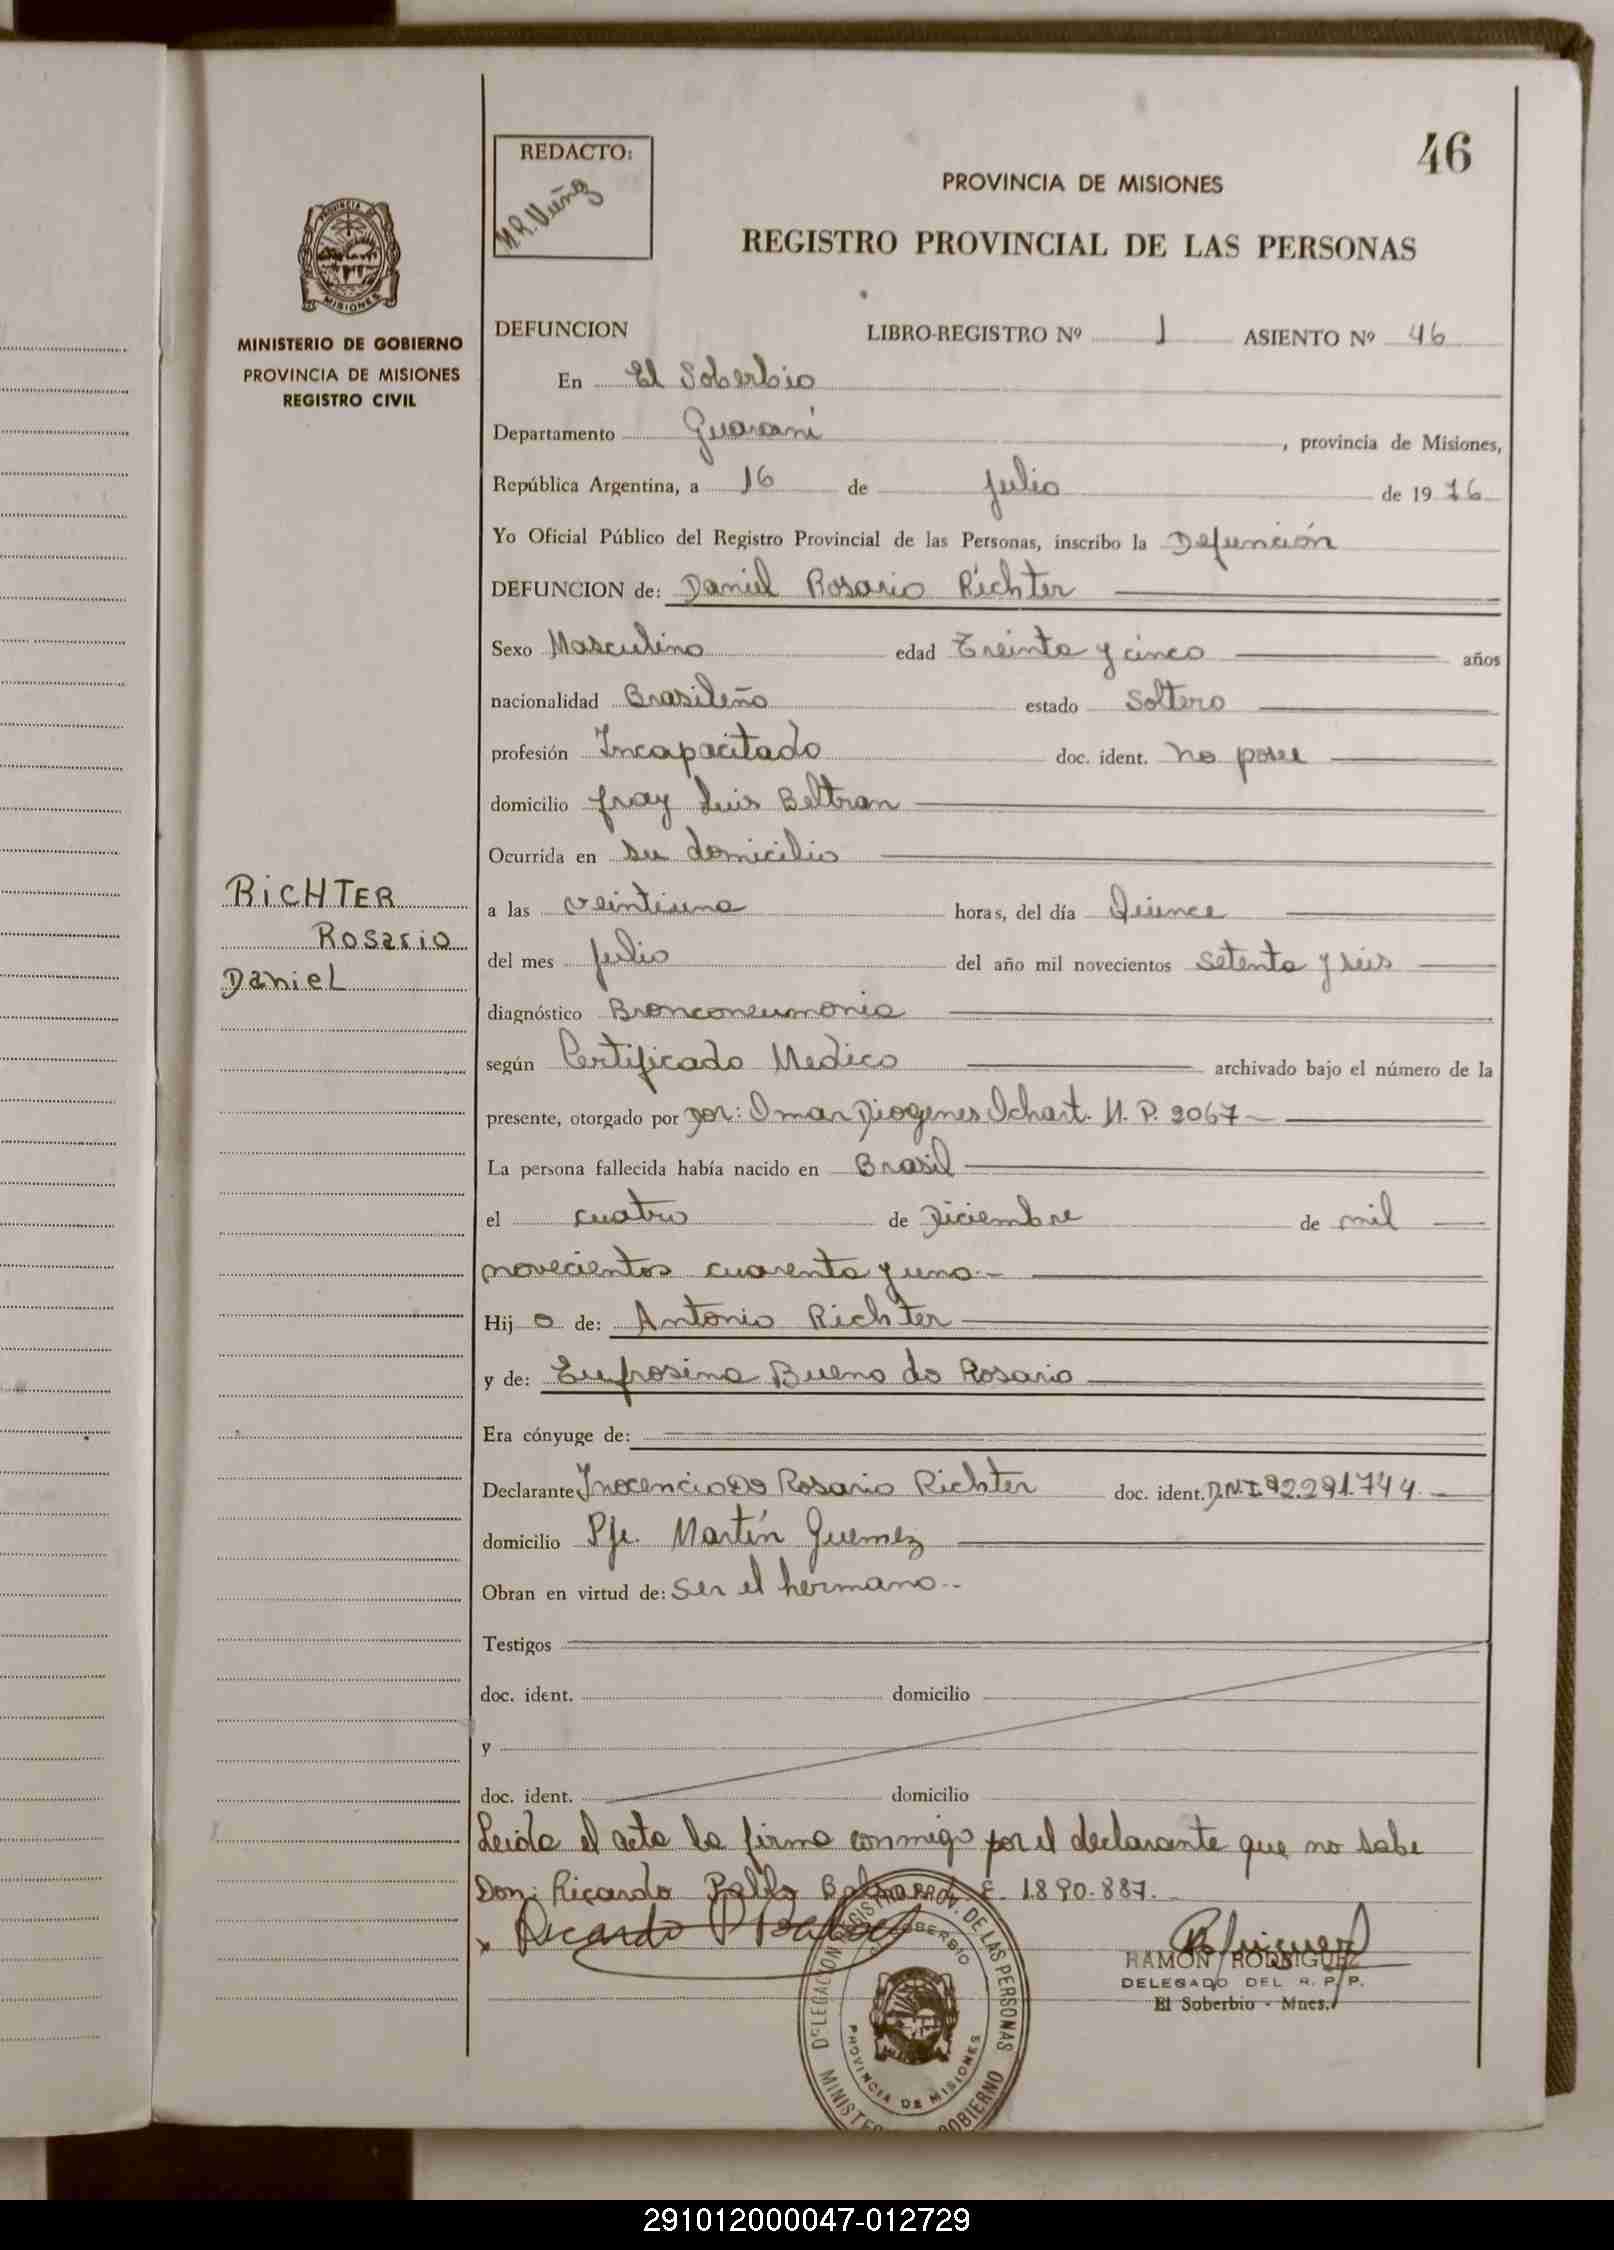 46
REDACTO:
PROVINCIA DE MISIONES
REGISTRO PROVINCIAL DE LAS PERSONAS
PROVINCIA DE
MISIONES
MINISTERIO DE GOBIERNO
PROVINCIA DE MISIONES
REGISTRO CIVIL
RiCHTER
Rosario
Daniel
DEFUNCION LIBRO-REGISTRO Nº 1 ASIENTO Nº 46
En El Soberbio
Departamento Guarani, provincia de Misiones,
República Argentina, a 16 de Julio de 1976
Yo Oficial Público del Registro Provincial de las Personas, inscribo la Defunción
DEFUNCION de: Daniel Rosario Richter
Sexo Masculino edad Treinta y cinco años
nacionalidad Brasileño estado Soltero
profesión Incapacitado doc. ident. no posee
domicilio fray Luis Beltran
Ocurrida en su domicilio
a las veintiuna horas, del día Quince
del mes Julio del año mil novecientos setenta y seis
diagnóstico Bronconeumonia
según Certificado Medico archivado bajo el número de la
presente, otorgado por por: Omar Diogenes Ichart. M. P. 2067
La persona fallecida había nacido en Brasil
el cuatro de Diciembre de mil
novecientos cuarenta y uno.-
Hij o de: Antonio Richter
y de: Eufrosina Bueno do Rosario
Era cónyuge de:
Declarante Inocencio Do Rosario Richter doc. ident. D.N.I. 92.291.744.
domicilio Pje. Martín Guemez
Obran en virtud de: ser el hermano.-
Testigos
doc. ident. domicilio
y
doc. ident. domicilio
Leida el acta la firma conmigo por el declarante que no sabe
Don: Ricardo Pablo E. 1.890.887.
Ricardo P
RAMON RODRIGUEZ
DELEGADO DEL R. P. P.
El Soberbio - Mnes.
DELEGACION REGISTRO PROV. DE LAS PERSONAS
SOBERBIO
PROVINCIA DE MISIONES
MINISTE OBIERNO
291012000047-012729